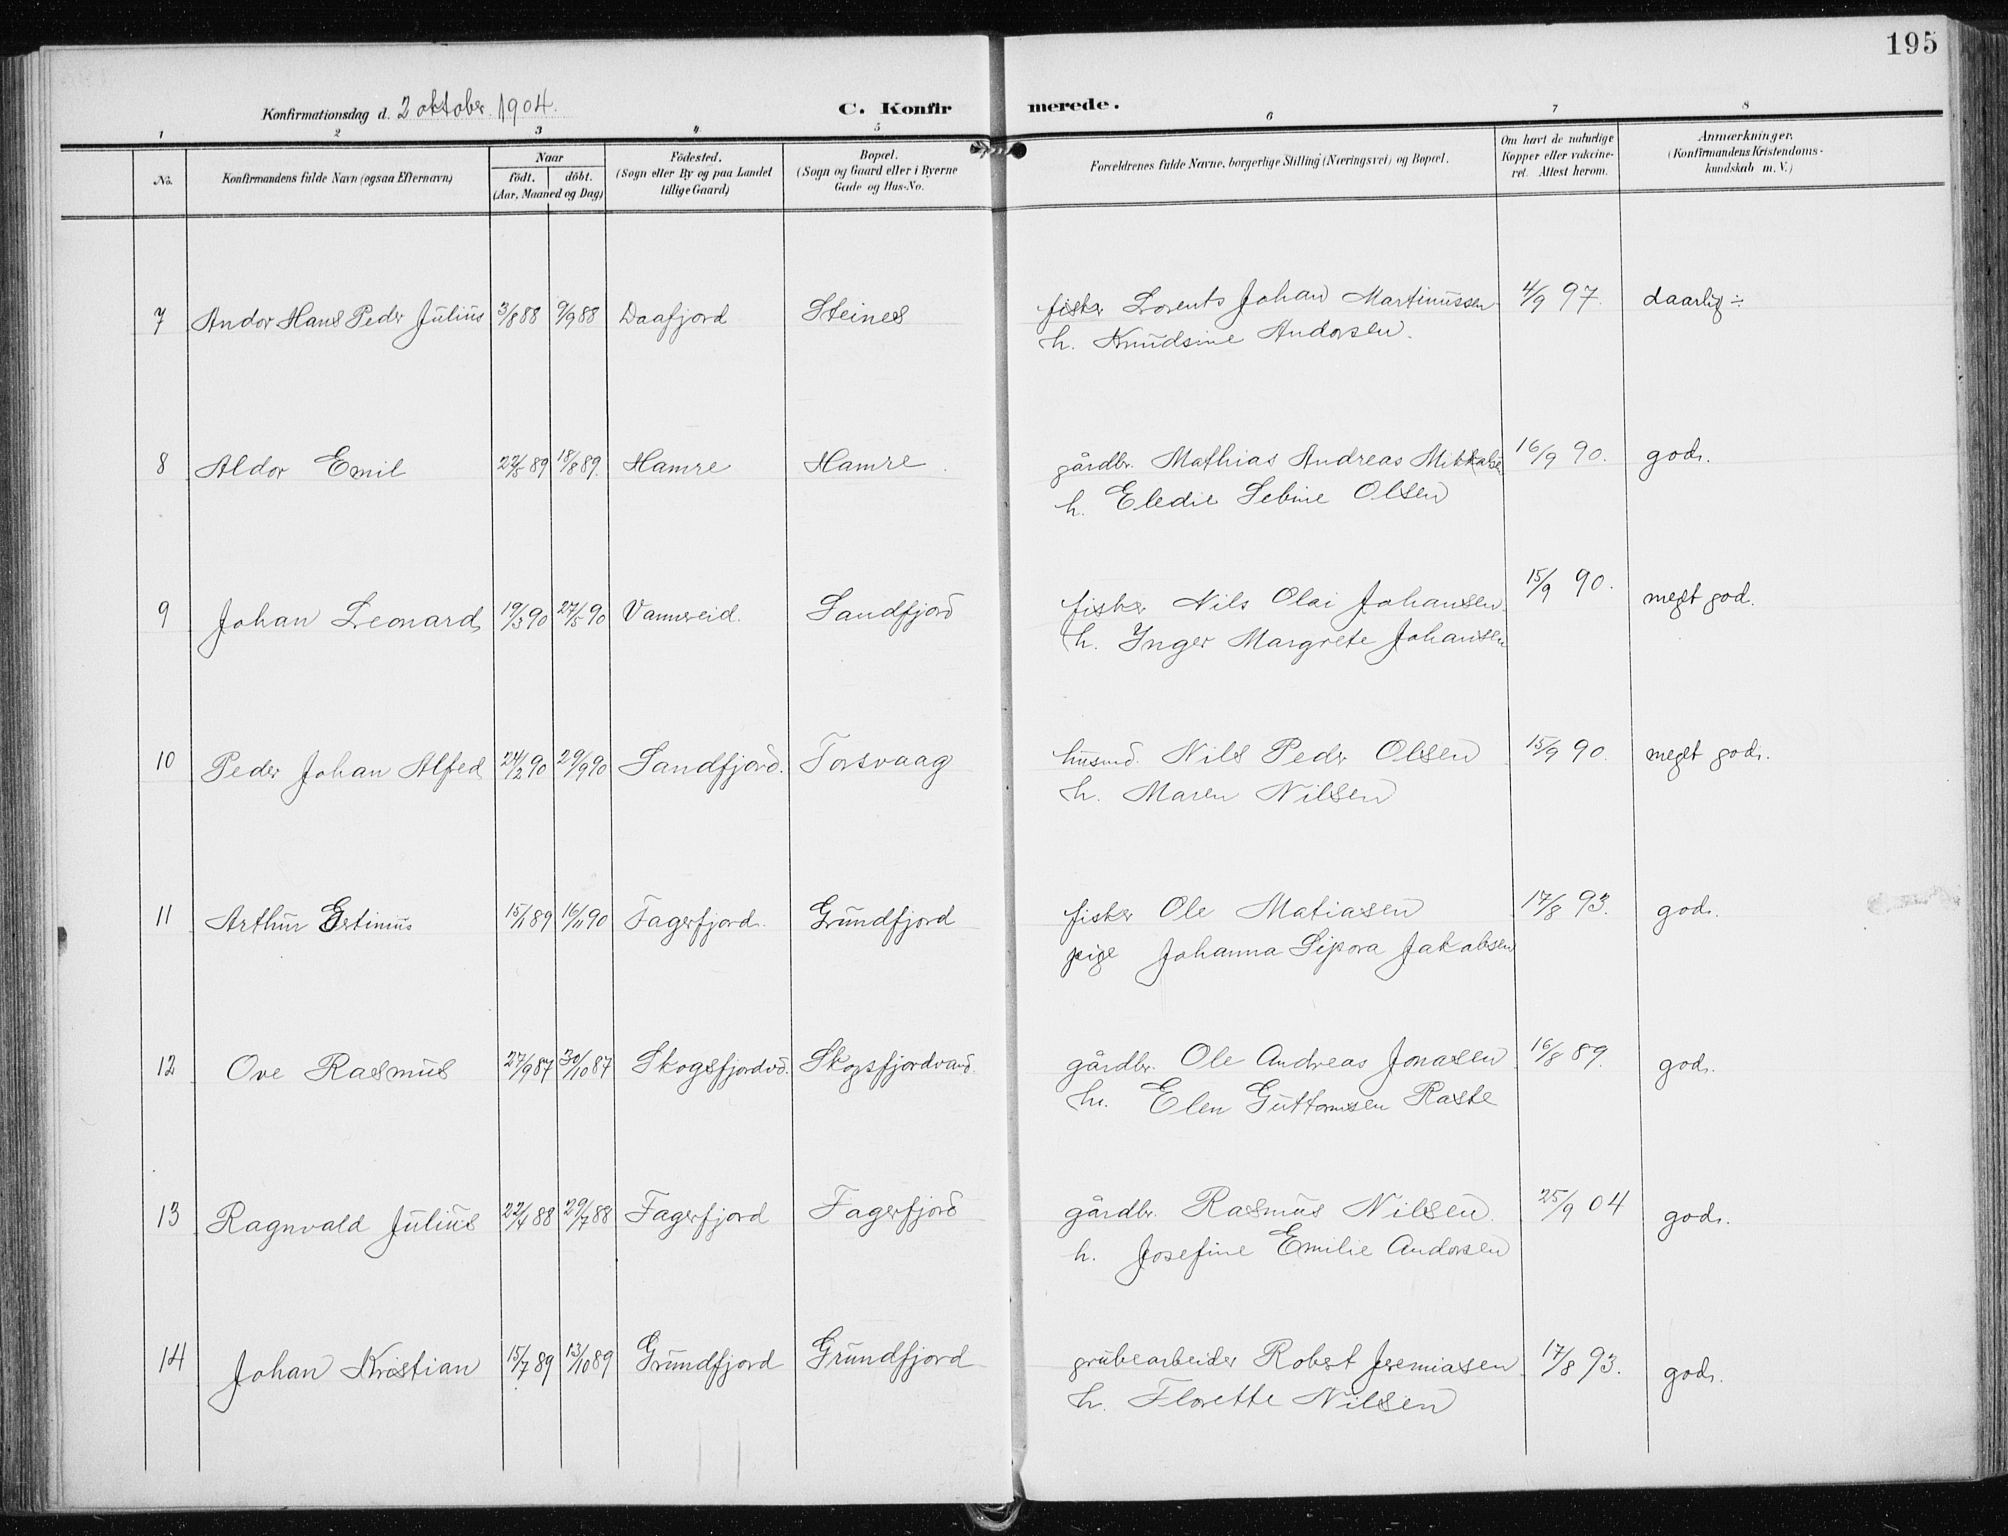 195
Konfirmationsdag d. 2 oktober 1904.
C. Konfirmerede.
1 2 3 4 5 6 7 8
No.
Konfirmandens fulde Navn (ogsaa Efternavn)
Naar
födt. döbt.
(Aar, Maaned og Dag)
Födested.
(Sogn eller By og paa Landet
tillige Gaard)
Bopæl.
(Sogn og Gaard eller i Byerne
Gade og Hus-No.
Forældrenes fulde Navne, borgerlige Stilling (Næringsvei) og Bopæl.
Om havt de naturlige
Kopper eller vakcine-
ret. Attest herom.
Anmærkninger.
(Konfirmandens Kristendoms-
kundskab m. V.)
7 Andor Hans Peder Julius 3/8 88 9/9 88 Daafjord Steines fisker Lorents Johan Martinussen 4/9 97. daarlig ÷
h. Knudsine Andorsen.
8 Aldor Emil 89 18/8 89. Hamre Hamre. gårdbr. Mathias Andreas Mikkalsen 16/9 90. god.
h. Eledie Sebine Olsen
9 Johan Leonard 19/3 90 27/5 90 Vannereid. Sandfjord fisker Nils Olai Johansen 15/9 90. meget god.
h. Inger Margrete Johansen
10 Peder Johan Alfed 24/2 90 29/9 90 Sandfjord. Torsvaag husmd. Nils Peder Olsen 15/9 90. meget god.
h. Maren Nilsen
11 Arthur Ertinius 89 90 Fagerfjord. Grundfjord fisker Ole Matiasen 17/8 93. god.
pige Johanna Sipora Jakobsen
12 Ove Rasmus 27/9 87 30/10 87 Skogsfjordvd. Skogsfjordvand. gårdbr. Ole Andreas Jonasen 16/8 89. god.
h. Elen Guttormsen Raste
13 Ragnvald Julius 22/4 88 29/7 88 Fagerfjord Fagerfjord gårdbr. Rasmus Nilsen 25/9 04 god.
h. Josefine Emilie Andorsen
14 Johan Kristian 15/7 89 13/10 89 Grundfjord Grundfjord grubearbeider Robert Jeremiasen 17/8 93. god.
h. Florette Nilsen